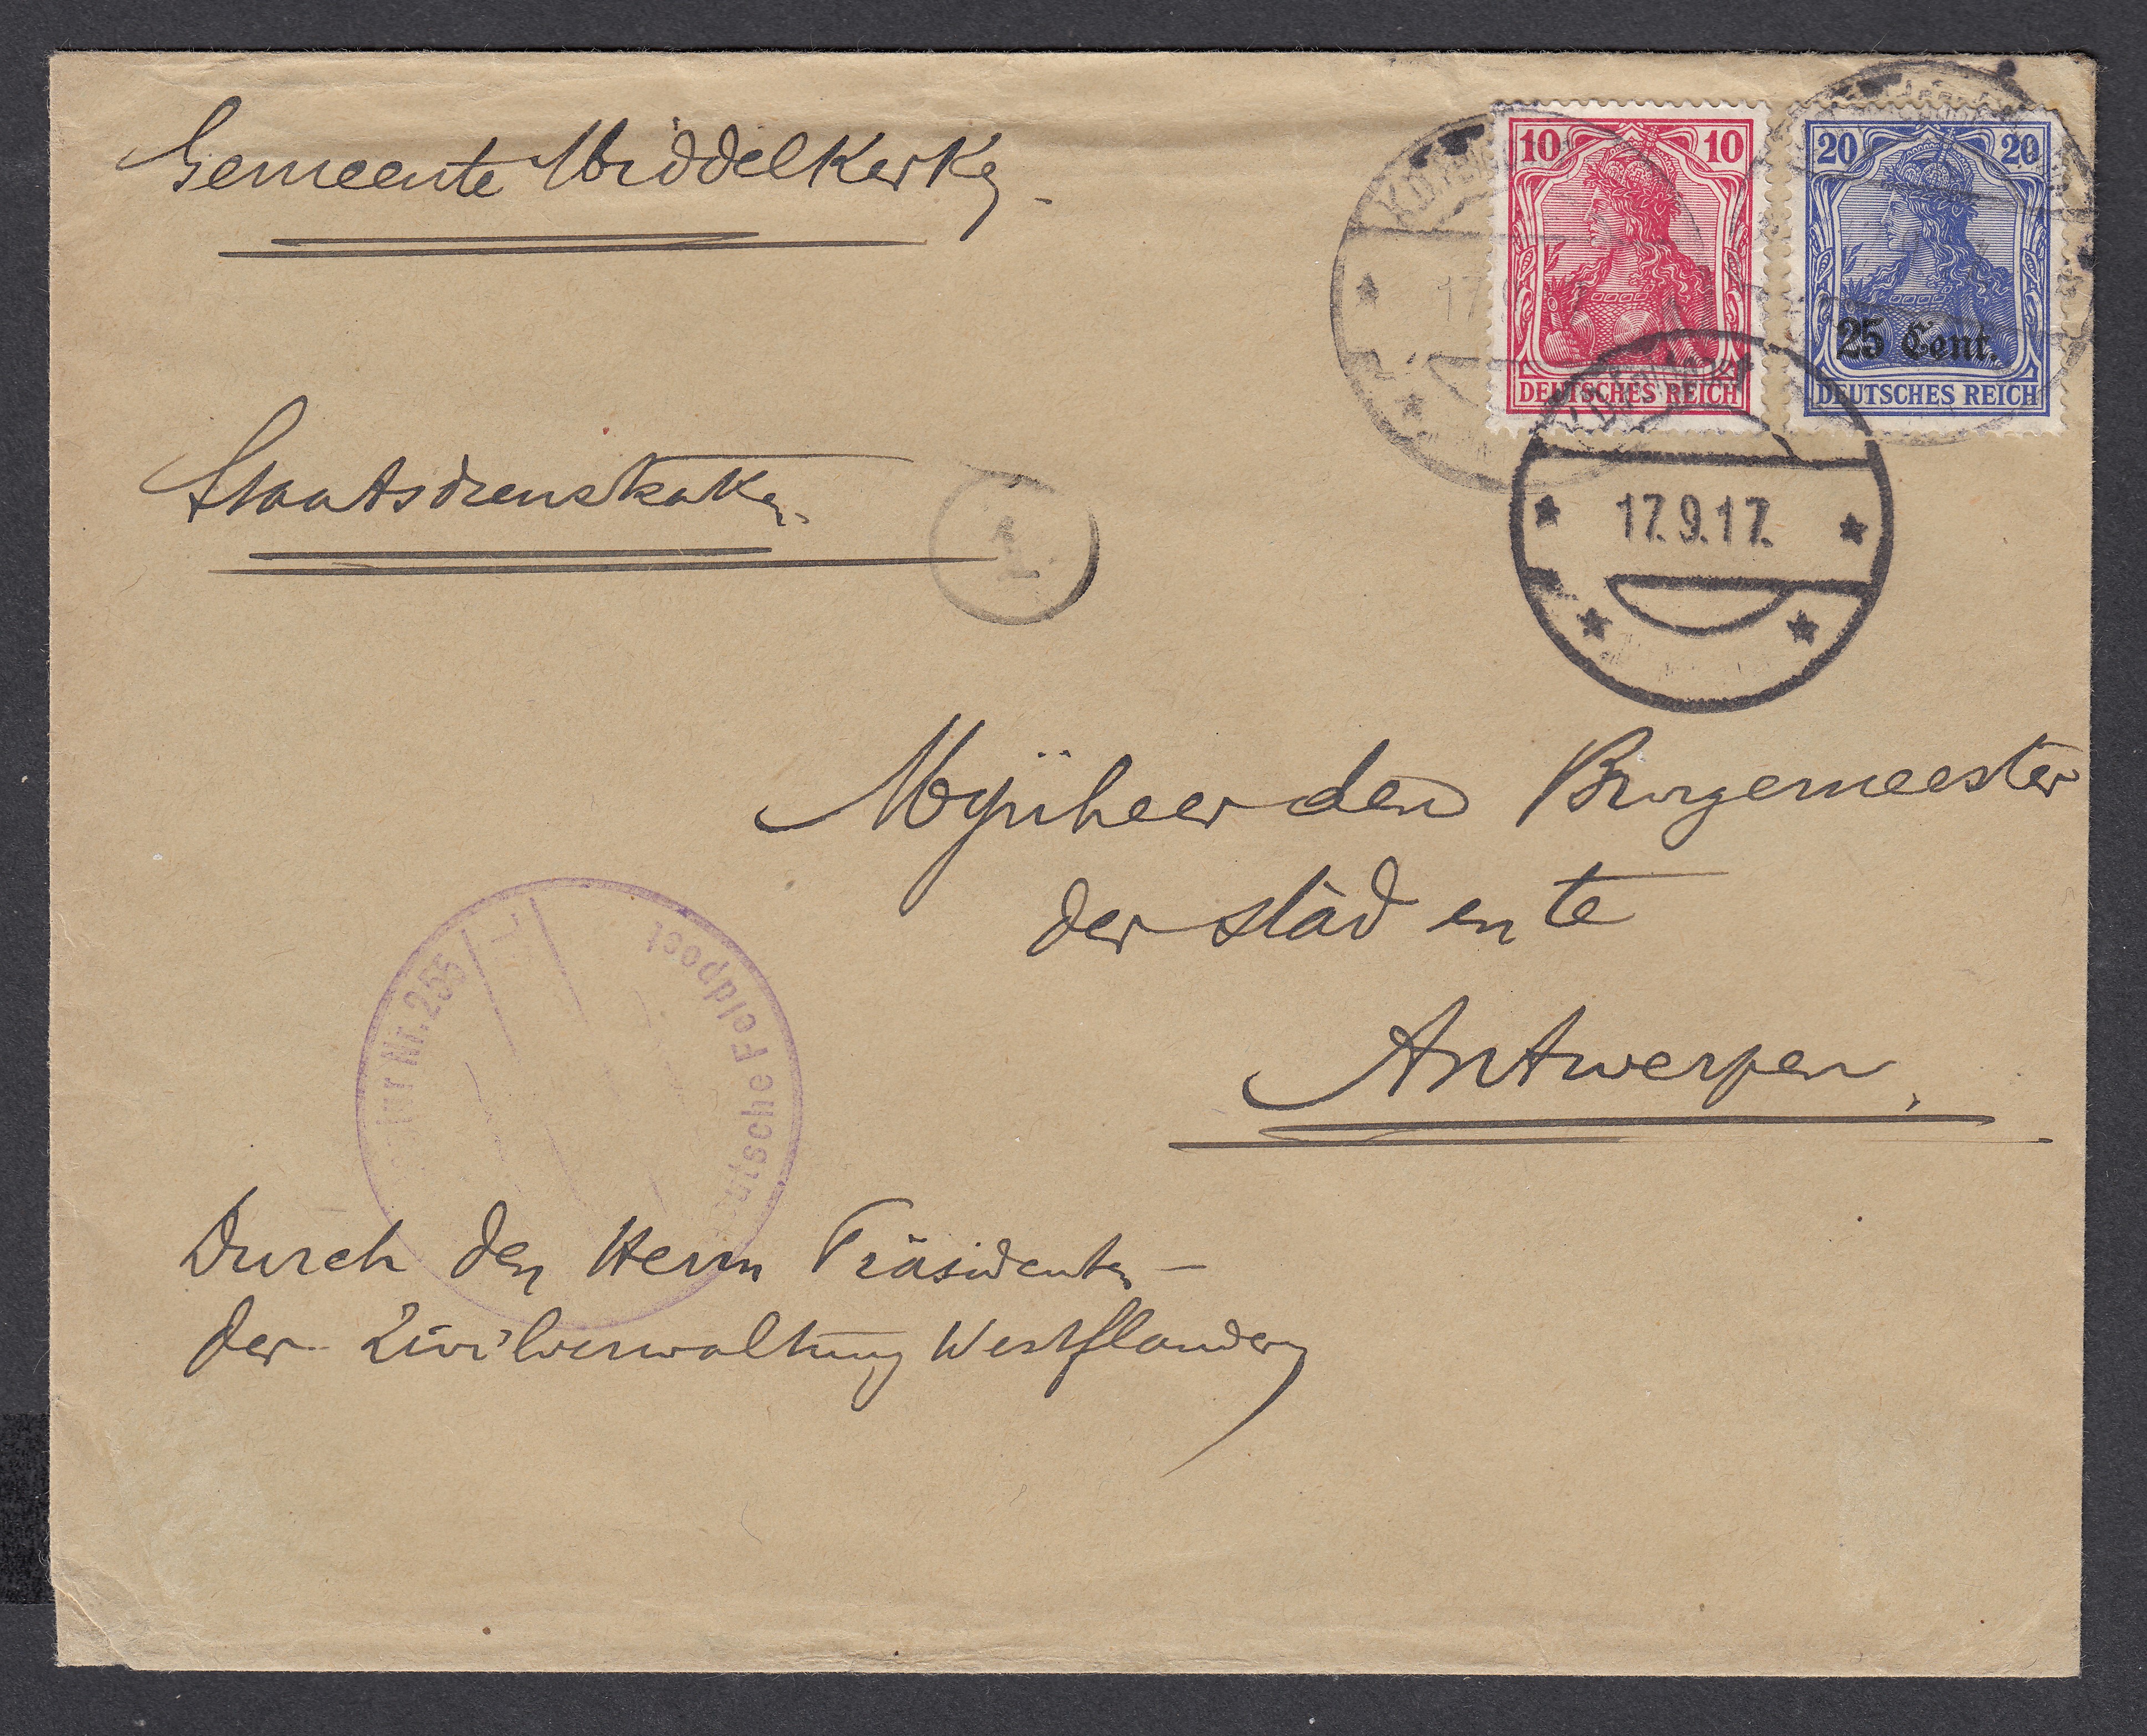 Gemeente Middelkerke
10 10
DEUTSCHES REICH
20 20
25 Cent.
DEUTSCHES REICH
17.9.17.
Staatsdienstsake
Mÿnheer den Burgemeester
der stad en te
Antwerpen,
Nr. 255
Deutsche Feldpost
Durch den Herrn Präsidenten
der Zivilverwaltung Westflandern